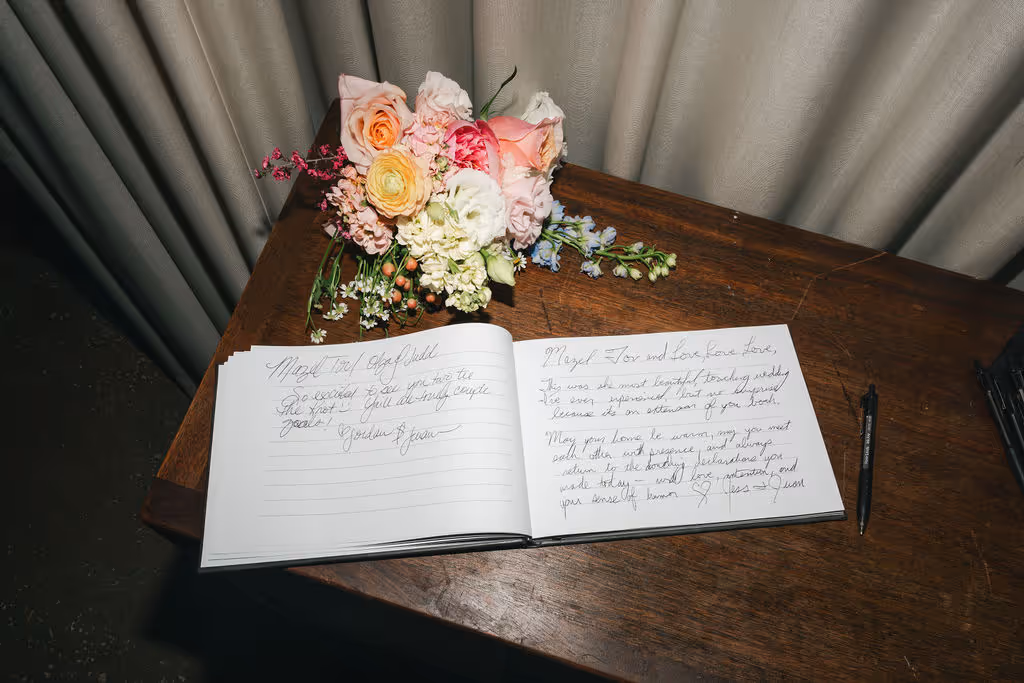 Mazel Tov! Olga & Judd
So excited to see you two tie
the knot! You're all truly couple
goals!
Jordan & Juan
Mazel Tov and Love, Love, Love,
This was the most beautiful, touching wedding
I've ever experienced, but no surprise
because it's an extension of you both.
May your home be warm, may you meet
each other with presence, and always
return to the declarations you
made today – with love, intention, and
your sense of humor ♡ Jess & Juan